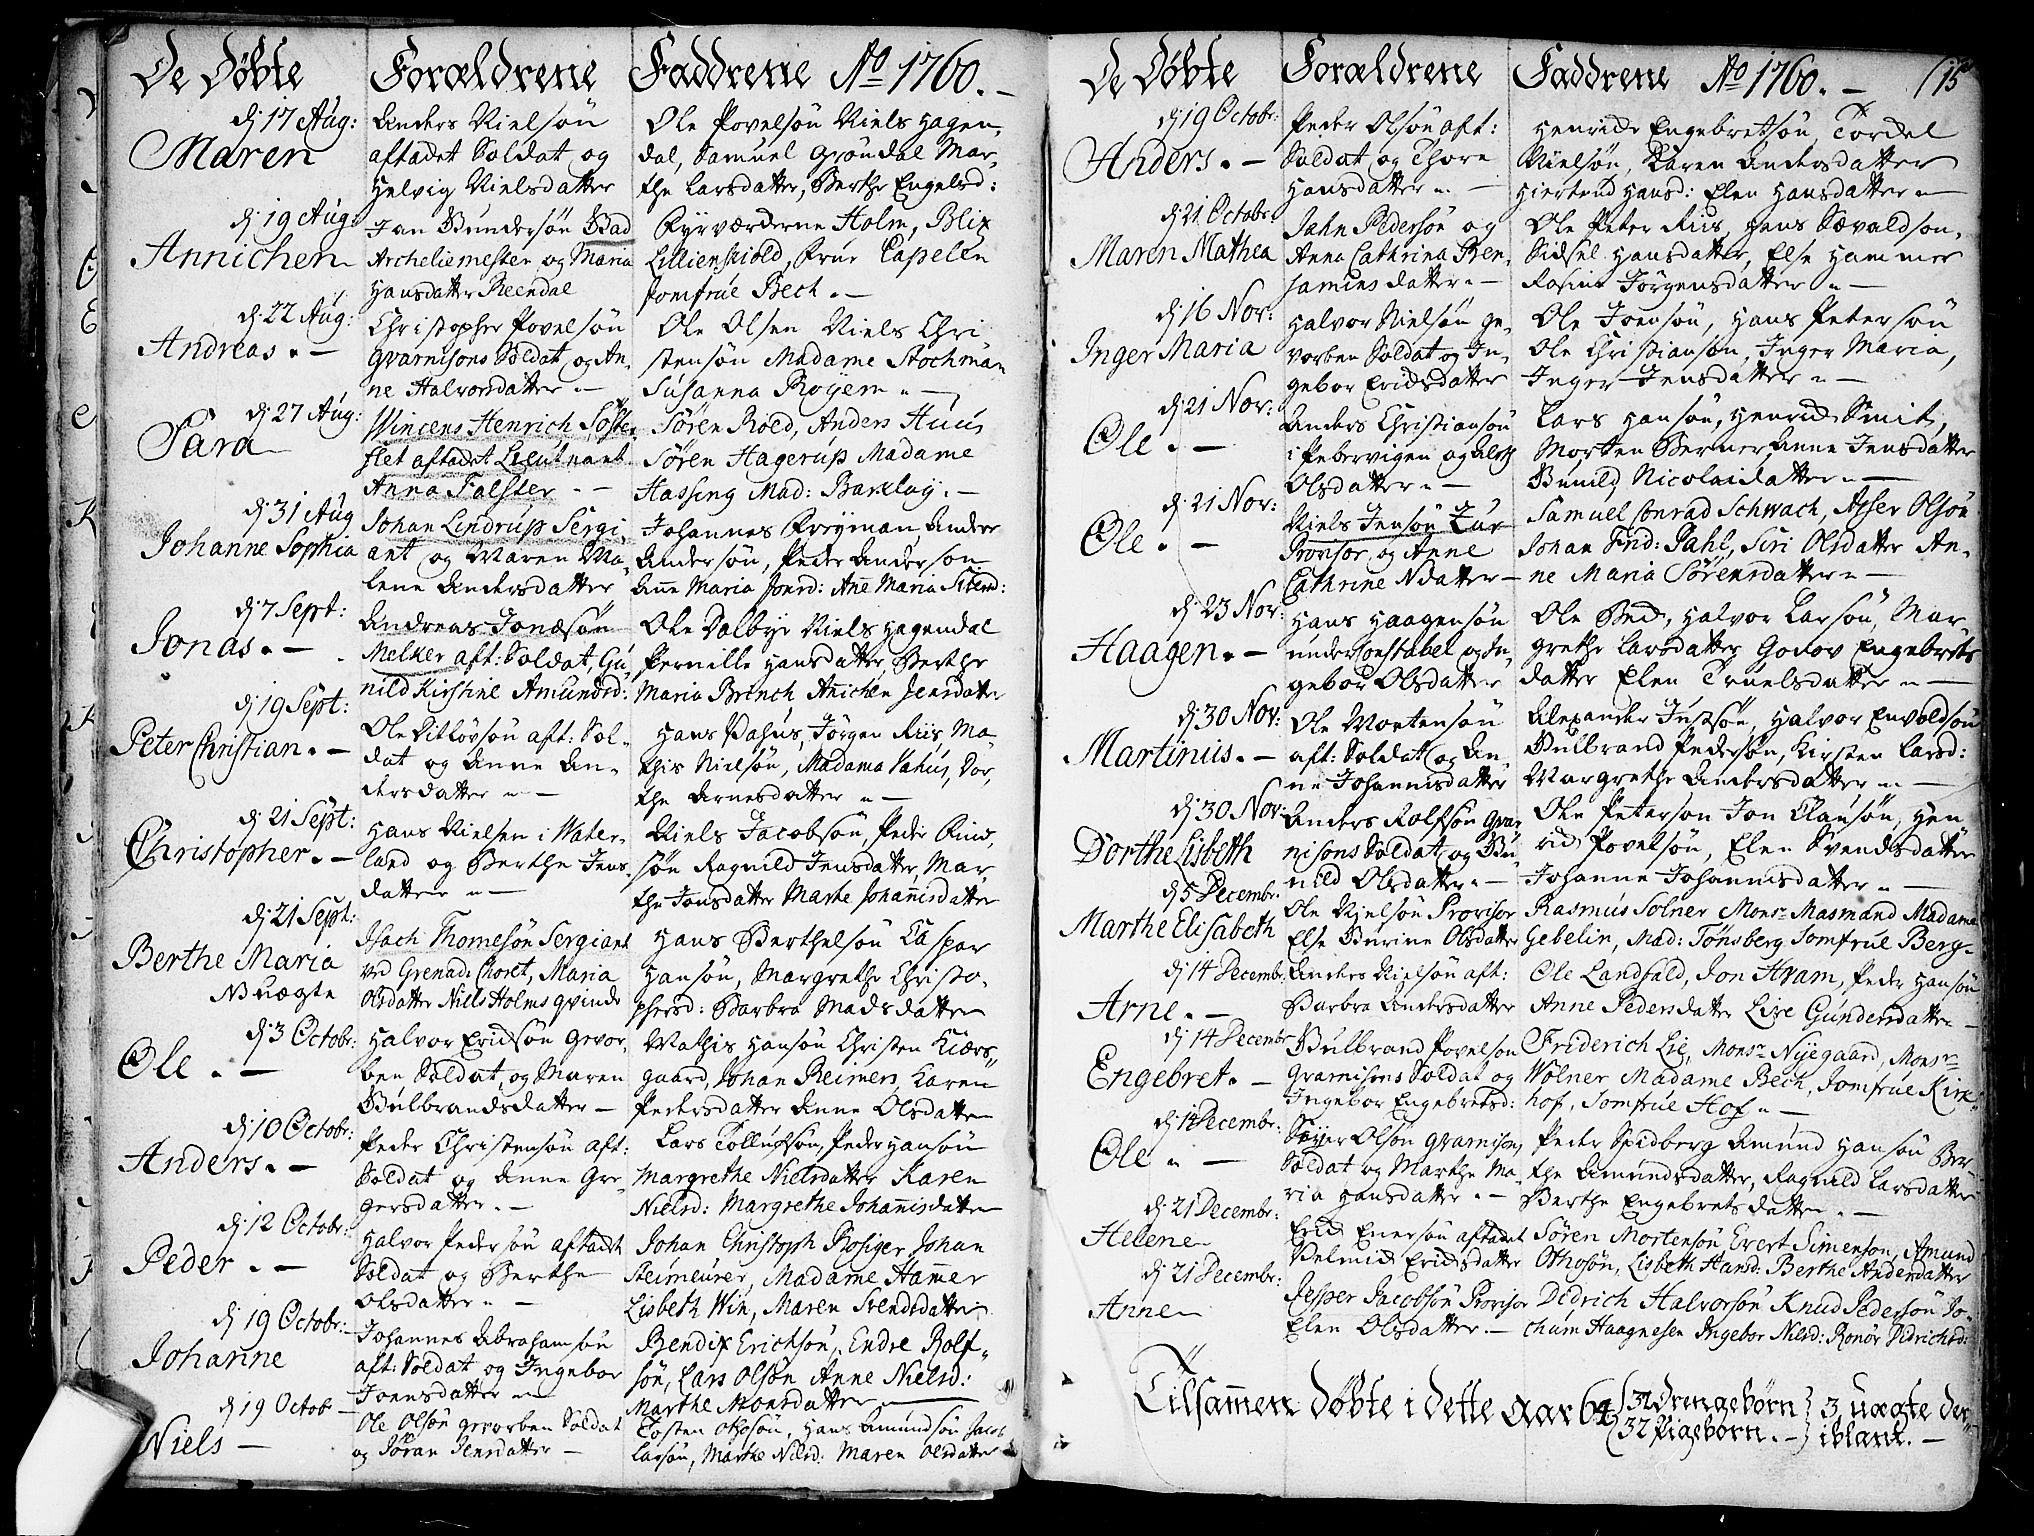 De Døbte Forældrene Faddrene Ao 1760. —
dj 17 Aug:
Maren
Anders Nielsøn
aftadet Soldat og
Helvig Nielsdatter
Ole Povelsøn Niels Hagen-
dal, Samuel Grøndal Mar-
the Larsdatter, Berthe Engelsd:
dj 19 Aug:
Annichen
Jan Gundersøn Bad
Archeliemester og Maria
Hansdatter Reendal
Fyrværderne Holm, Blix
Lillienskiold, Frue Capelen
Jomfrue Bech. —
dj 22 Aug:
Andreas. —
Christopher Povelsøn
Gvarnisons Soldat og An-
ne Halvorsdatter. —
Ole Olsen Niels Chri
stensøn Madame Stochman
Susanna Rogem —
dj 27 Aug:
Sara
Wincens Henrich Søster
flet aftadet Lieutnant
Anna Falster — —
Søren Roed, Anders Huus
Søren Hagerup Madame
Hassing Mad: Barclay. —
dj 31 Aug
Johanne Sophia
Johan Lindrup Sergi-
ant og Maren Ma-
lene Andersdatter
Johannes Fryman, Anders
Andersøn, Peder Anderson
Ane Maria Jonsd: Ane Maria
dj 7 Sept:
Jonas. —
Andreas Jonæsøn
Melker aft: Soldat, Gu-
nild Kirstine Amundsd:
Ole Dalbye Niels Hagendal
Pernille Hansdatter, Berthe
Maria Brinch, Anichen Jensdatter
dj 19 Sept:
Peter Christian. —
Ole Ditløvsøn aft: Sol-
dat og Anne An-
dersdatter —
Hans Vahus, Jørgen Riis Ma-
this Nielsøn, Madama Vahus, Dor-
the Arnesdatter —
dj 21 Sept:
Christopher. —
Hans Nielsen i Water-
land og Berthe Jens-
datter —
Niels Jacobsøn, Peder
søn Ragnild Jensdatter, Mar-
the Jonsdatter Marte Johannisdatter
dj 21 Sept:
Berthe Maria
NB uægte
Isach Thomesøn Sergiant
ved Grenad: Choret, Maria
Olsdatter Niels Holms qvinde
Hans Berthelsøn Caspar
Hansøn, Margrethe Christo-
phersd: Barbra Madsdatter
dj 3 Octobr:
Ole. —
Halvor Erichsøn gevor-
ben Soldat, og Maren
Gulbrandsdatter —
Mathis Hansøn Christen Kiærs-
gaard, Johan Reimers, Karen
Pedersdatter Anne Olsdatter
dj 10 Octobr:
Anders. —
Peder Christensøn aft:
Soldat og Anne Gre-
gersdatter. —
Lars Tollufsøn, Peder Hansøn
Margrethe Nielsdatter Karen
Nielsd: Margrethe Johanisdatter
dj 12 Octobr:
Peder. —
Halvor Pedersøn aftadt
Soldat og Berthe
Olsdatter —
Johan Christoph Rosiger Johan
Steimeurer, Madame Hammer
Lisbeth Win, Maren Svendsdatter
dj 19 Octobr:
Johanne
Johannes Abrahamsøn
aft: Soldat og Ingebor
Joensdatter —
Bendix Erichsøn, Endre Rolf-
søn, Lars Olsøn Anne Nielsd:
Marthe Monsdatter
dj 19 Octob —
Niels —
Ole Olsøn gevorben Soldat
og Jøran Jensdatter —
Tosten Ottosøn, Hans Amundsøn Jacob
Larsøn, Marthe Nielsd: Maren Olsdatter
De Døbte Forældrene Faddrene Ao 1760. — (15
dj 19 Octobr:
Anders. —
Peder Olsøn aft:
Soldat og Thore
Hansdatter —
Henrich Engebretsøn, Tordel
Nielsøn, Karen Andersdatter
Hiertrud Hansd: Elen Hansdatter —
dj 21. Octobr:
Maren Mathea
Jahn Pedersøn og
Anna Cathrina Ben-
jamins datter —
Ole Peter Riis, Hans Sævaldson,
Sidsel Hansdatter, Else Hammer
Rosine Jørgensdatter —
dj 16 Nov:
Inger Maria
Halvor Nielsøn ge-
vorben Soldat og In-
gebor Erichsdatter
Ole Joensøn, Hans Petersøn
Ole Christianson, Inger Maria,
Inger Jensdatter —
dj 21 Nov:
Ole. —
Anders Christiansøn
i Pebervigen og Aleth
Olsdatter —
Lars Hansøn, Henrich Smit,
Morten Berner Anne Jensdatter
Gunild Nicolaidatter —
dj 21 Nov:
Ole. —
Niels Jensøn Lur
Provisor og Anne
Cathrine Ndatter —
Samuel Conrad Schwach, Asser Olsøn
Johan Frid: Pahl, Siri Olsdatter An-
ne Maria Sørensdatter —
dj 23 Nov:
Haagen. —
Hans Haagensøn
underConstabel og In-
gebor Olsdatter
Ole Bech, Halvor Larsøn, Mar
grethe Larsdatter Godov Engebrets
datter Elen Truelsdatter —
dj 30 Nov:
Martinus. —
Ole Mortensøn
aft: Soldat og An-
ne Johannisdatter
Alexander Justsøn, Halvor Envoldsøn
Gulbrand Pedersøn, Kirsten Larsd:
Margrethe Andersdatter —
dj 30 Nov:
Dorthe Lisbeth
Anders Rolfsøn Gvar
nisons Soldat og Gu-
nild Olsdatter —
Ole Peterson Jon Clausøn, Hen
rich Povelsøn, Elen Svendsdatter
Johanne Johannisdatter —
dj 5 Decembr:
Marthe Elisabeth
Ole Nielsøn Provisor
Else Gurine Olsdatter
Rasmus Solner Monsr Masmand Madame
Gebelin, Mad: Tønsberg Jomfrue Berg-
dj 14 Decembr:
Arne. —
Anders Nielsøn aft:
Barbra Andersdatter
Ole Landfald, Jon Hvam, Peder Hansøn
Anne Pedersdatter Lize Gundersdatter —
dj 14 Decembr
Engebret. —
Gulbrand Povelsøn
Gvarnisons Soldat og
Ingebor Engebretsd:
Friderich Lie, Monsr Nyegaard, Monsr
Wolner Madame Bech, Jomfrue Kirk-
hof, Jomfrue Hof —
dj 14 Decembr:
Ole —
Syver Olsøn Gvarnison,
Soldat og Marthe Ma-
ria Hansdatter. —
Peder Spidberg Amund Hansøn Ber-
the Amundsdatter, Ragnild Larsdatter
Berthe Engebretsdatter. —
dj 21 Decembr:
Helene
Erich Enersøn aftadet
Erichsdatter
Søren Mortensøn Evert Simensøn, Amund
Othosøn, Lisbeth Hansd: Berthe Andersdatter
dj 21 Decembr:
Anne
Jesper Jacobsøn Provisor
Elen Olsdatter. —
Didrich Halvorsøn Knud Pedersøn Jo-
chum Haagnesen Ingebor Nielsd: Ronør Didrichsd:
Tilsammen døbte i dette aar 64 (32 drengebørn
32 Pigebørn. —) 3 uægte der-
iblant. —